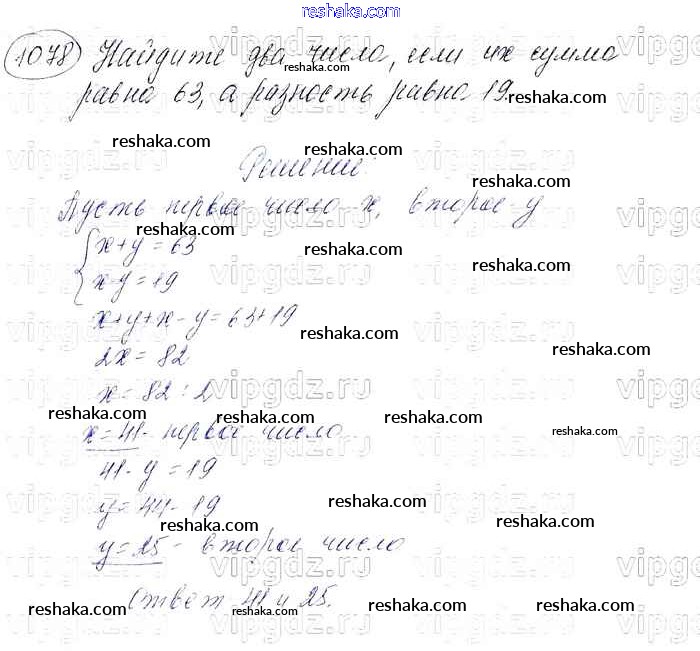 reshaka.com
1078 Найдите два числа, если их сумма
равна 63, а разность равна 19.
Решение:
Пусть первое число x, второе y
x+y=63
x-y=19
x+y+x-y=63+19
2x=82
x=82:2
x=41- первое число
41-y=19
y=44-19
y=25- второе число
Ответ 41 и 25.
vipgdz.ru